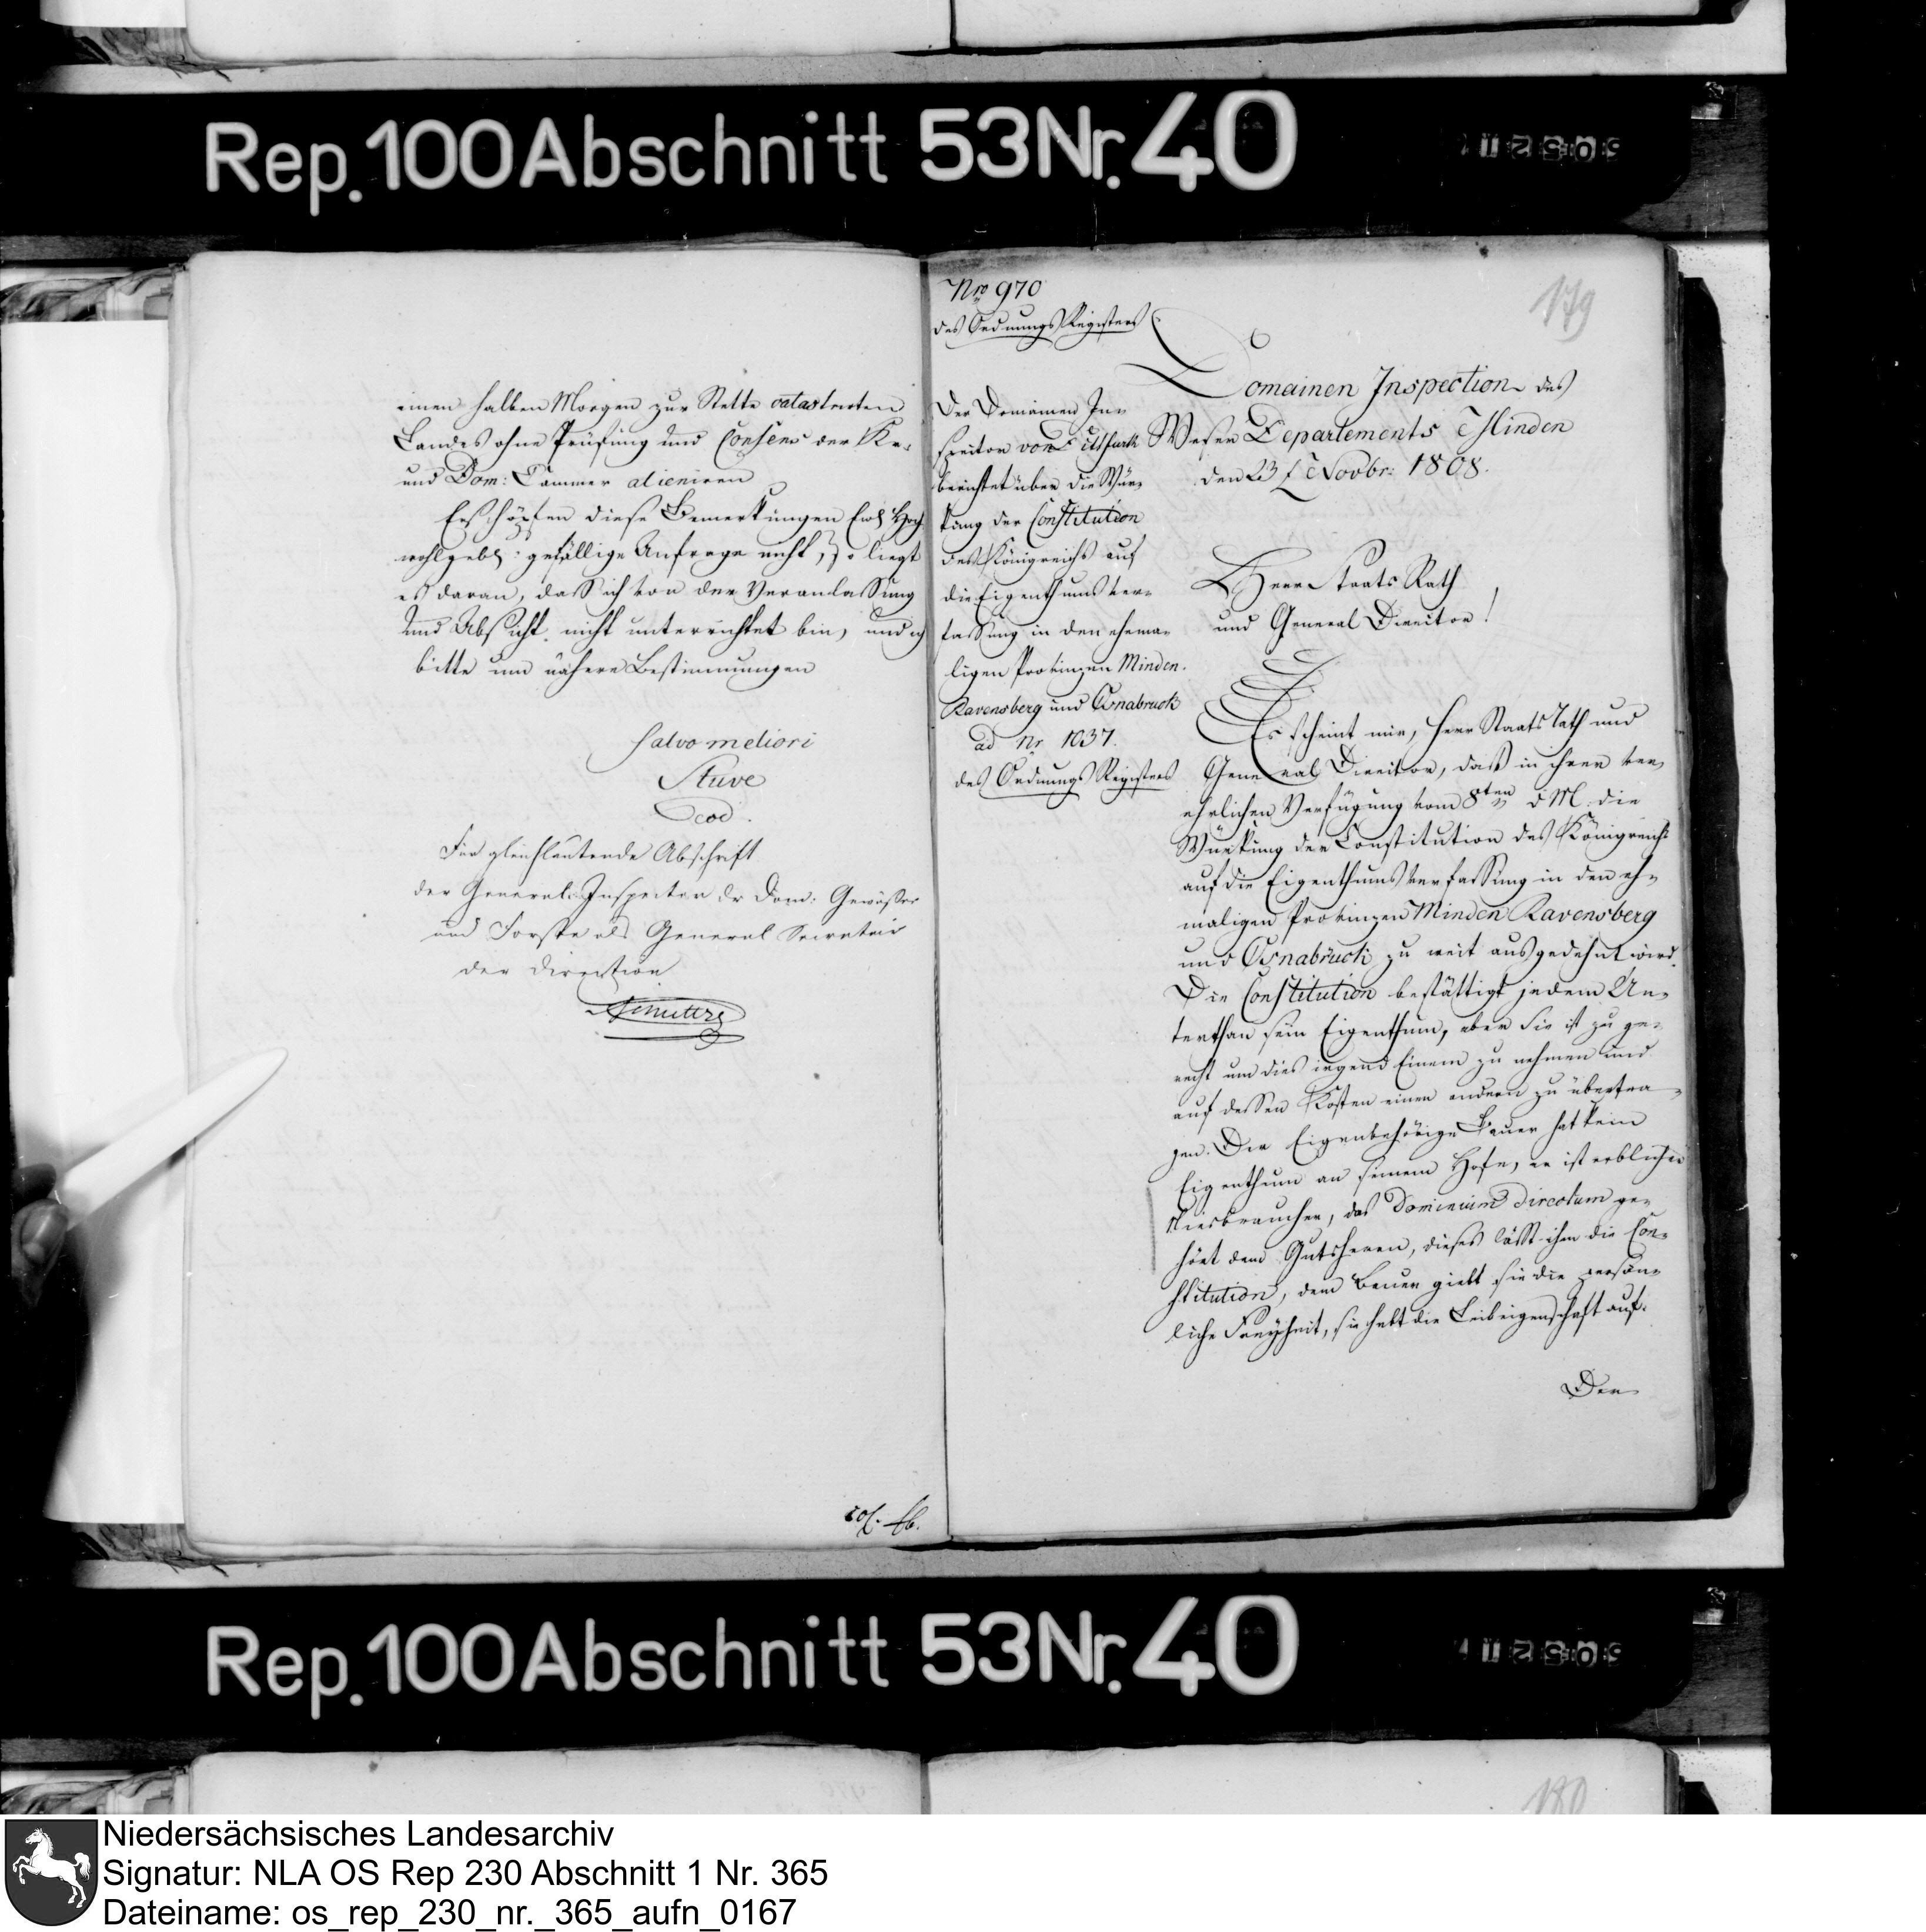 Rep. 100 Abschnitt 53 Nr. 40
einen halben Morgen zur Stette catastrirten
Landes ohne Prüfung und Consens der Kr.
und Dom: Cammer alieniren
Erschöpfen diese Bemerkungen Ewl Hoch
wohlgebl: gefällige Anfrage nicht, so liegt
es daran, daß ich von der Veranlassung
und Absicht nicht unterrichtet bin, und ich
bitte um nähere Bestimmungen
salvo meliori
Stuve
Für gleichlautende Abschrift
der General-Inspector der Dom: Gewässer
und Forste als General Secretair
der Direction
Nro 970
des Ordnungs Registers
Der Domainen In=
spector von
berichtet über die Wür=
kung der Constitution
des Königreichs auf
die Eigenthums ver=
fassung in den ehema=
ligen Provinzen Minden.
Ravensberg und Osnabruck
ad Nr 1037.
des Ordnungs Registers
179
Domainen Inspection des
Weser Departements Minden
den 23 t Novbr: 1808.
Herr Staats Rath
und General Director!
Es scheint mir, Herr Staats Rath und
General Director, daß in ihrer ver=
ehrlichen Verfügung vom 8ten d M. die
Würkung der Constitution des Königreichs
auf die Eigenthums verfassung in den eh=
maligen Provinzen Minden Ravensberg
und Osnabrück zu weit ausgedehnt wird.
Die Constitution bestättigt jedem Un=
terthan sein Eigenthum, aber sie ist zu ge=
recht um dies irgend Einem zu nehmen und
auf dessen Kosten einen andern zu übertra=
gen. Der Eigenbehörige Bauer hat kein
Eigenthum an seinem Hofe, er ist erblicher
Niesbraucher, das Dominium directum ge=
hört dem Gutsherrn, dieses läßt ihm die Con=
stitution, dem Bauer giebt sie die persön=
liche Freyheit, sie hebt die Leibeigenschaft auf.
Der
Rep. 100 Abschnitt 53 Nr. 40
180
Niedersächsisches Landesarchiv
Signatur: NLA OS Rep 230 Abschnitt 1 Nr. 365
Dateiname: os_rep_230_nr._365_aufn_0167